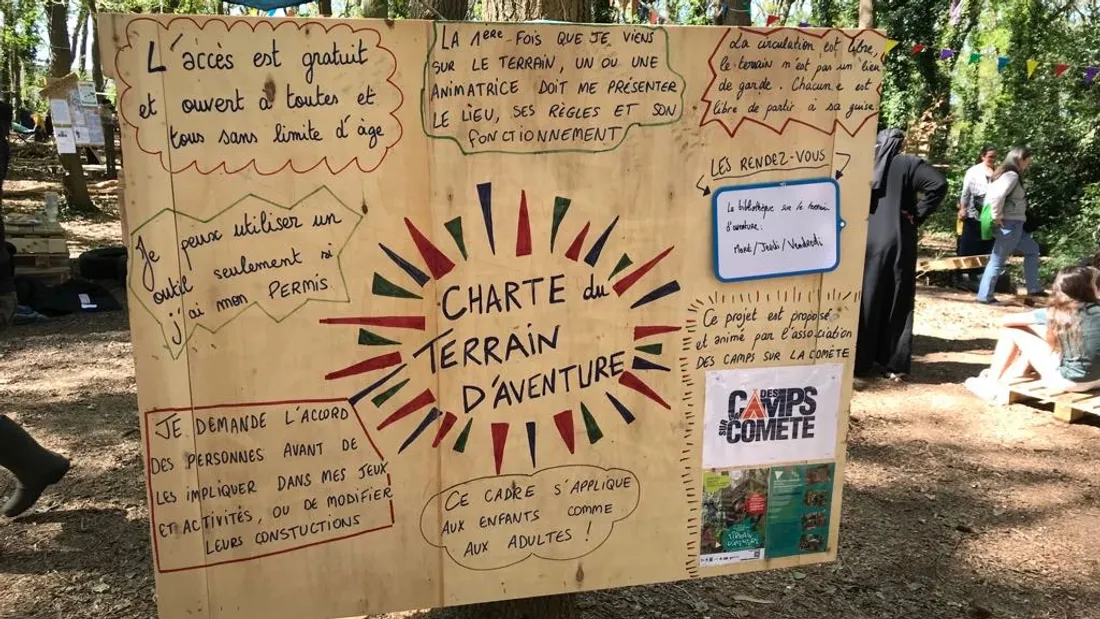 L'accès est gratuit
et ouvert à toutes et
tous sans limite d'âge
LA 1ère FOIS QUE JE VIENS
SUR LE TERRAIN, UN OU UNE
ANIMATRICE DOIT ME PRÉSENTER
LE LIEU, SES RÈGLES ET SON
FONCTIONNEMENT
La circulation est libre,
le terrain n'est pas un lieu
de garde. Chacun.e est
libre de partir à sa guise
LES RENDEZ-VOUS
La bibliothèque sur le terrain
d'aventure.
Mard/Jeudi/Vendredi
Je peux utiliser un
outil seulement si
j'ai mon PERMIS.
CHARTE du
TERRAIN
D'AVENTURE
Ce projet est proposé
et animé par l'association
DES CAMPS SUR LA COMÈTE
DES
CAMPS
SUR LA
COMETE
JE DEMANDE L'ACCORD
DES PERSONNES AVANT DE
LES IMPLIQUER DANS MES JEUX
ET ACTIVITÉS, OU DE MODIFIER
LEURS CONSTUCTIONS
CE CADRE S'APPLIQUE
AUX ENFANTS COMME
AUX ADULTES !
TERRAIN
D'AVENTURE